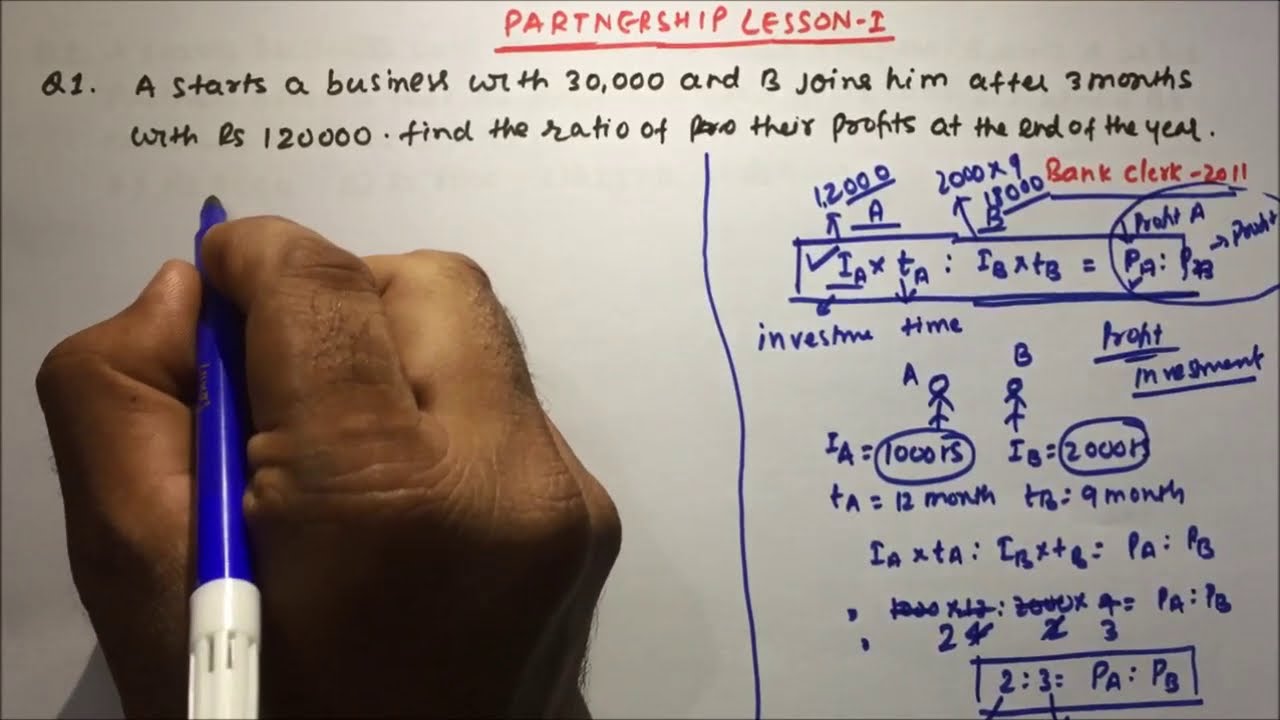 PARTNERSHIP LESSON-I
Q1. A starts a business with 30,000 and B joins him after 3 months
with Rs 120000. find the ratio of their profits at the end of the year.
Bank Clerk-2011
12000 2000×9
18000
A B Profit A
I_A × t_A : I_B × t_B = P_A : P_B → Profit
investme time
Profit
investment
A B
I_A = 1000rs I_B = 2000rs
t_A = 12 month t_B = 9 month
I_A × t_A : I_B × t_B = P_A : P_B
1000 × 12 : 2000 × 9 = P_A : P_B
2 4 2 3
2 : 3 = P_A : P_B